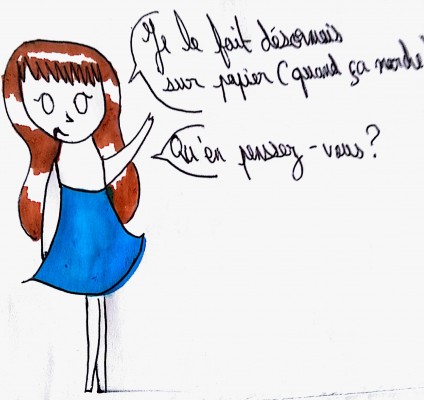 Je le fait désormais
sur papier (quand ça marche)
Qu'en penssez-vous?